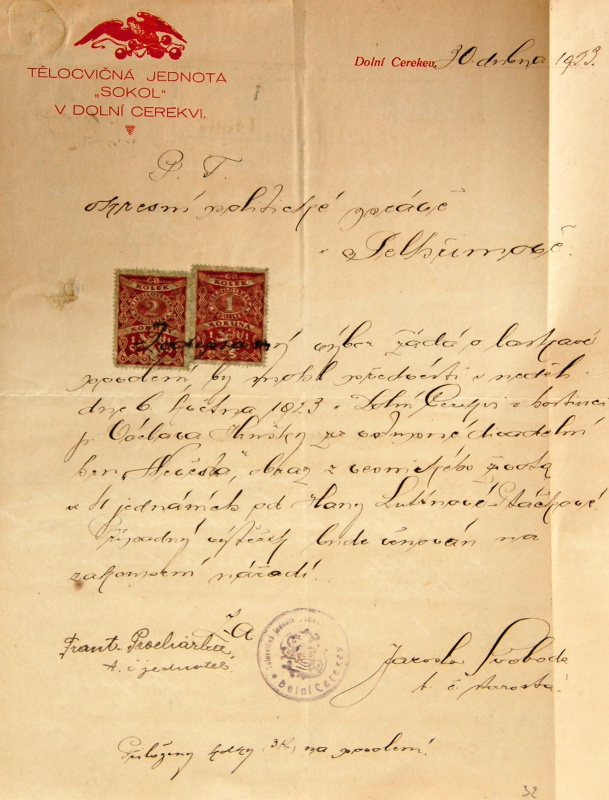 TĚLOCVIČNÁ JEDNOTA
„SOKOL"
V DOLNÍ CEREKVI.
Dolní Cerekev, 30. dubna 1923.
P. T.
okresní politické správě
v Pelhřimově.
KOLEK
2
KORUNY
KOLEK
1
KORUNA
výbor žádá o laskavé
povolení by mohl předvésti v neděli
dne 6. května 1923 v Dolní Cerekvi v hostinci
p. Václava Hrušky za vstupné divadelní
hru „Nevěsta", obraz z venkovského života
v jednáních od Hany Lutínové-Ptáčkové.
Případný výtěžek bude věnován na
zakoupení nářadí.
Za
Frant. Procházka,
t. č. jednatel.
Dolní Cerekev
Jarosla Svoboda
t. č. starosta.
Přiloženy kolky (3K) na povolení.
32